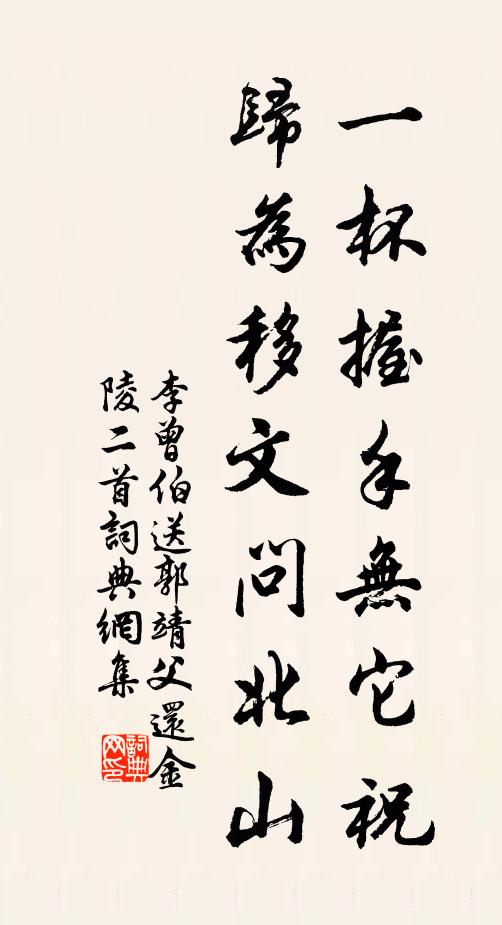 一杯握手無它祝
歸為移文問北山
李曾伯送郭靖父還金
陵二首詞典網集
詞典
网印